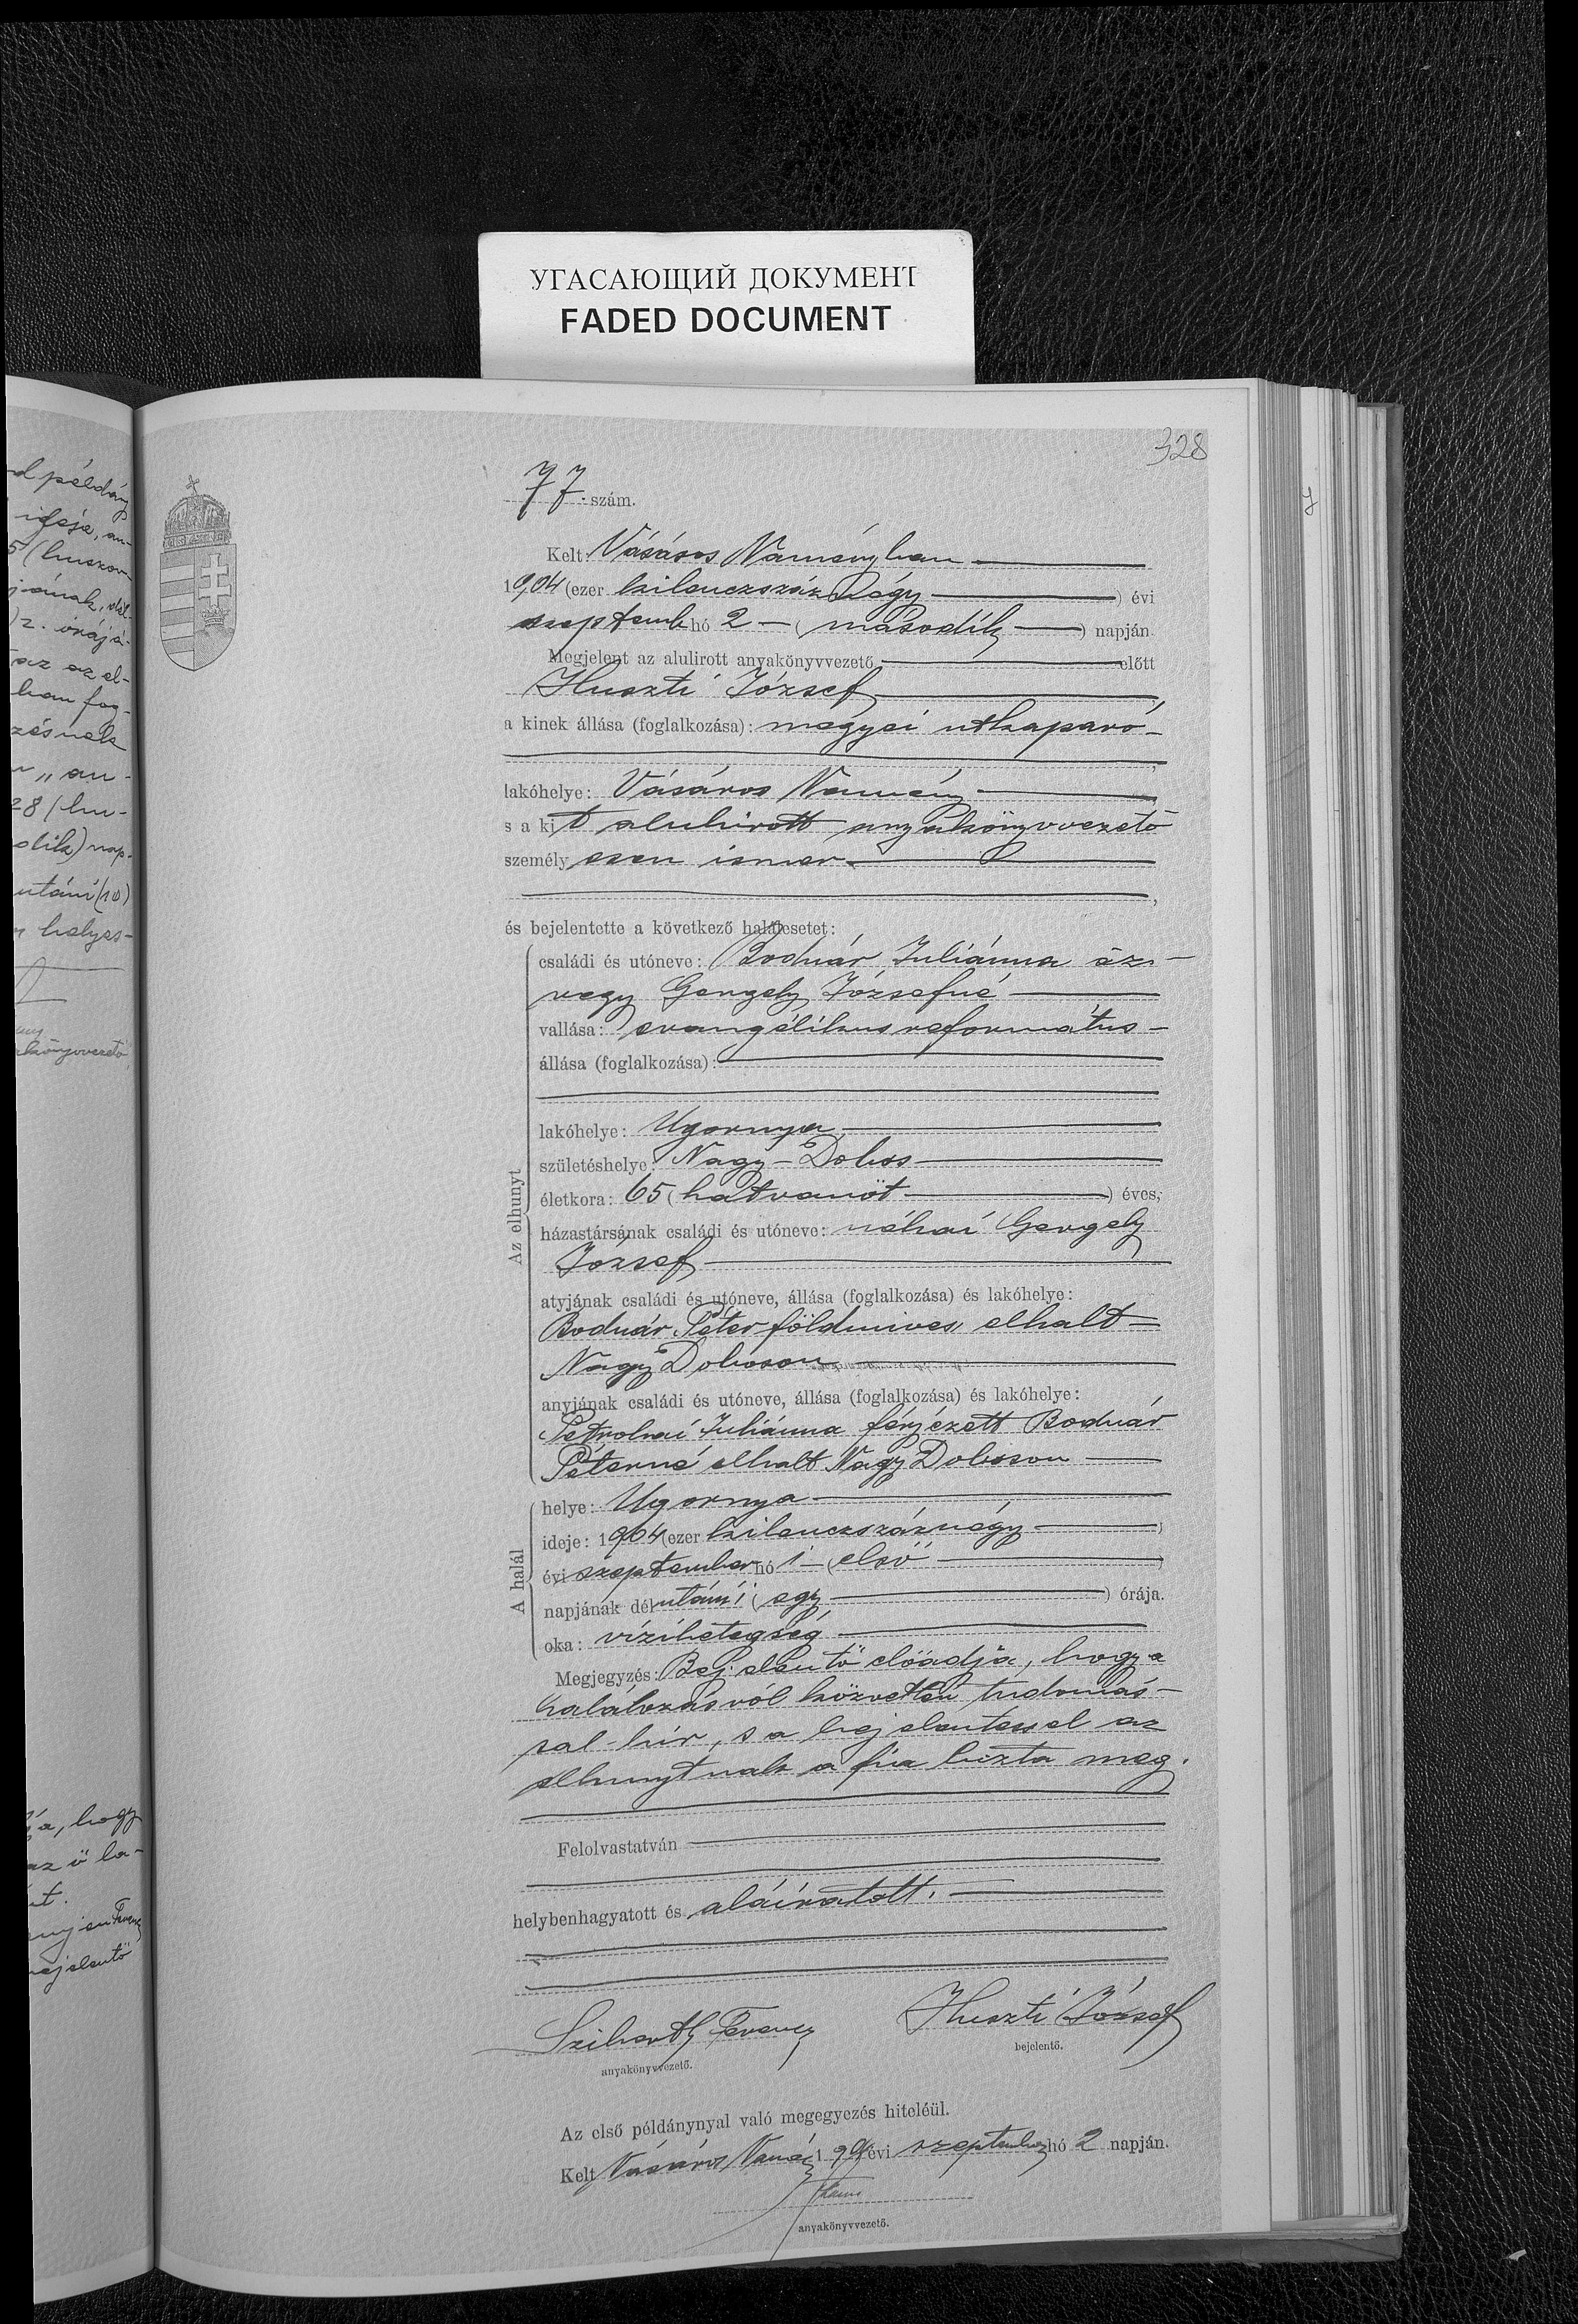 УГАСАЮЩИЙ ДОКУМЕНТ
FADED DOCUMENT
328
77. szám.
Kelt: Vásáros Naményban
1904 (ezer kilenczszáznégy) évi
szeptemb hó 2 (második) napján.
Megjelent az alulirott anyakönyvvezető előtt
Huszti József,
a kinek állása (foglalkozása): megyei utkaparó,
lakóhelye: Vásáros Namény,
s a kit alulirott anyakönyvvezető
személyesen ismer,
és bejelentette a következő halálesetet:
Az elhunyt
családi és utóneve: Bodnár Juliánna öz-
vegy Gergely Józsefné
vallása: evangélikus református
állása (foglalkozása):
lakóhelye: Ugornya
születéshelye: Nagy-Dobos
életkora: 65 (hatvanöt) éves,
házastársának családi és utóneve: néhai Gergely
József
atyjának családi és utóneve, állása (foglalkozása) és lakóhelye:
Bodnár Péter földmives, elhalt
Nagy Doboson
anyjának családi és utóneve, állása (foglalkozása) és lakóhelye:
Petrohai Juliánna férjezett Bodnár
Péterné elhalt Nagy Doboson
A halál
helye: Ugornya
ideje: 1904 (ezer kilenczszáznégy)
évi szeptember hó 1 (első)
napjának délutáni (egy) órája.
oka: vízibetegség
Megjegyzés: Bejelentő előadja, hogy a
halálozásról közvetlen tudomás-
sal bír, s a bejelentéssel az
elhunytnak a fia bizta meg.
Felolvastatván
helybenhagyatott és aláiratott.
Ferencz
anyakönyvvezető.
Huszti József
bejelentő.
Az első példánynyal való megegyezés hiteléül.
Kelt Vásáros Namény 1904 évi szeptember hó 2 napján.
anyakönyvvezető.